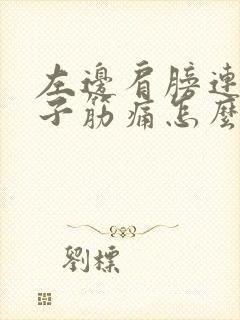 左邊肩膀連
子筋痛怎麼
劉標